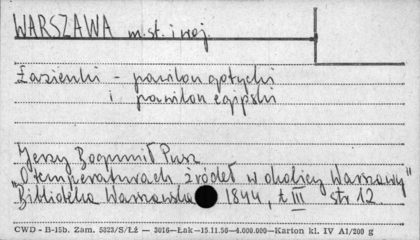 WARSZAWA m.st. i woj.
Łazienki - pawilon gotycki
i pawilon egipski
Jerzy Bogumił Pusz
"O temperaturach źródeł w okolicy Warszawy"
Biblioteka Warszawska 1844, t III str 12.
CWD - B-15b. Zam. 5823/S/Łż — 3616—Łak—15.11.56—4.000.000—Karton kl. IV A1/200 g